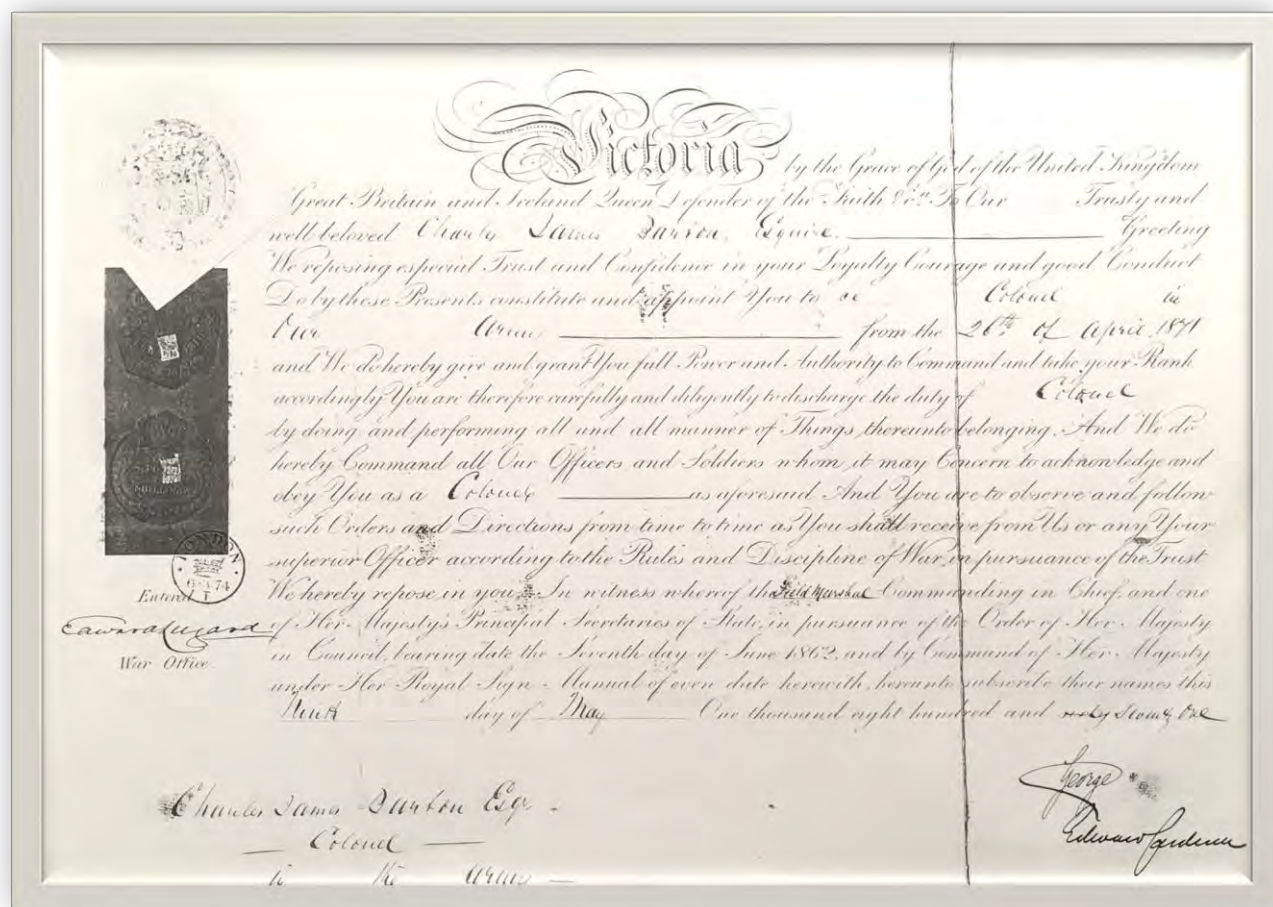 Victoria by the Grace of God of the United Kingdom
Great Britain and Ireland Queen Defender of the Faith &c.a To Our Trusty and
well beloved Charles James Esquire Greeting
We reposing especial Trust and Confidence in your Loyalty Courage and good Conduct
Do by these Presents constitute and appoint You to be Colonel in
Our Army from the 26th of April 1871
and We do hereby give and grant You full Power and Authority to Command and take your Rank
accordingly You are therefore carefully and diligently to discharge the duty of Colonel
by doing and performing all and all manner of Things thereunto belonging. And We do
hereby Command all Our Officers and Soldiers whom it may Concern to acknowledge and
obey You as a Colonel as aforesaid And You are to observe and follow
such Orders and Directions from time to time as You shall receive from Us or any Your
superior Officer according to the Rules and Discipline of War, in pursuance of the Trust
We hereby repose in you. In witness whereof the Field Marshal Commanding in Chief, and one
of Her Majesty's Principal Secretaries of State, in pursuance of the Order of Her Majesty
in Council, bearing date the Seventh day of June 1862, and by Command of Her Majesty
under Her Royal Sign Manual of even date herewith, hereunto subscribe their names this
day of May One thousand eight hundred and Seventy One
LONDON
74
Entered
Edward Lugard
War Office
George
Edward
Charles James Esqr
Colonel
in the Army